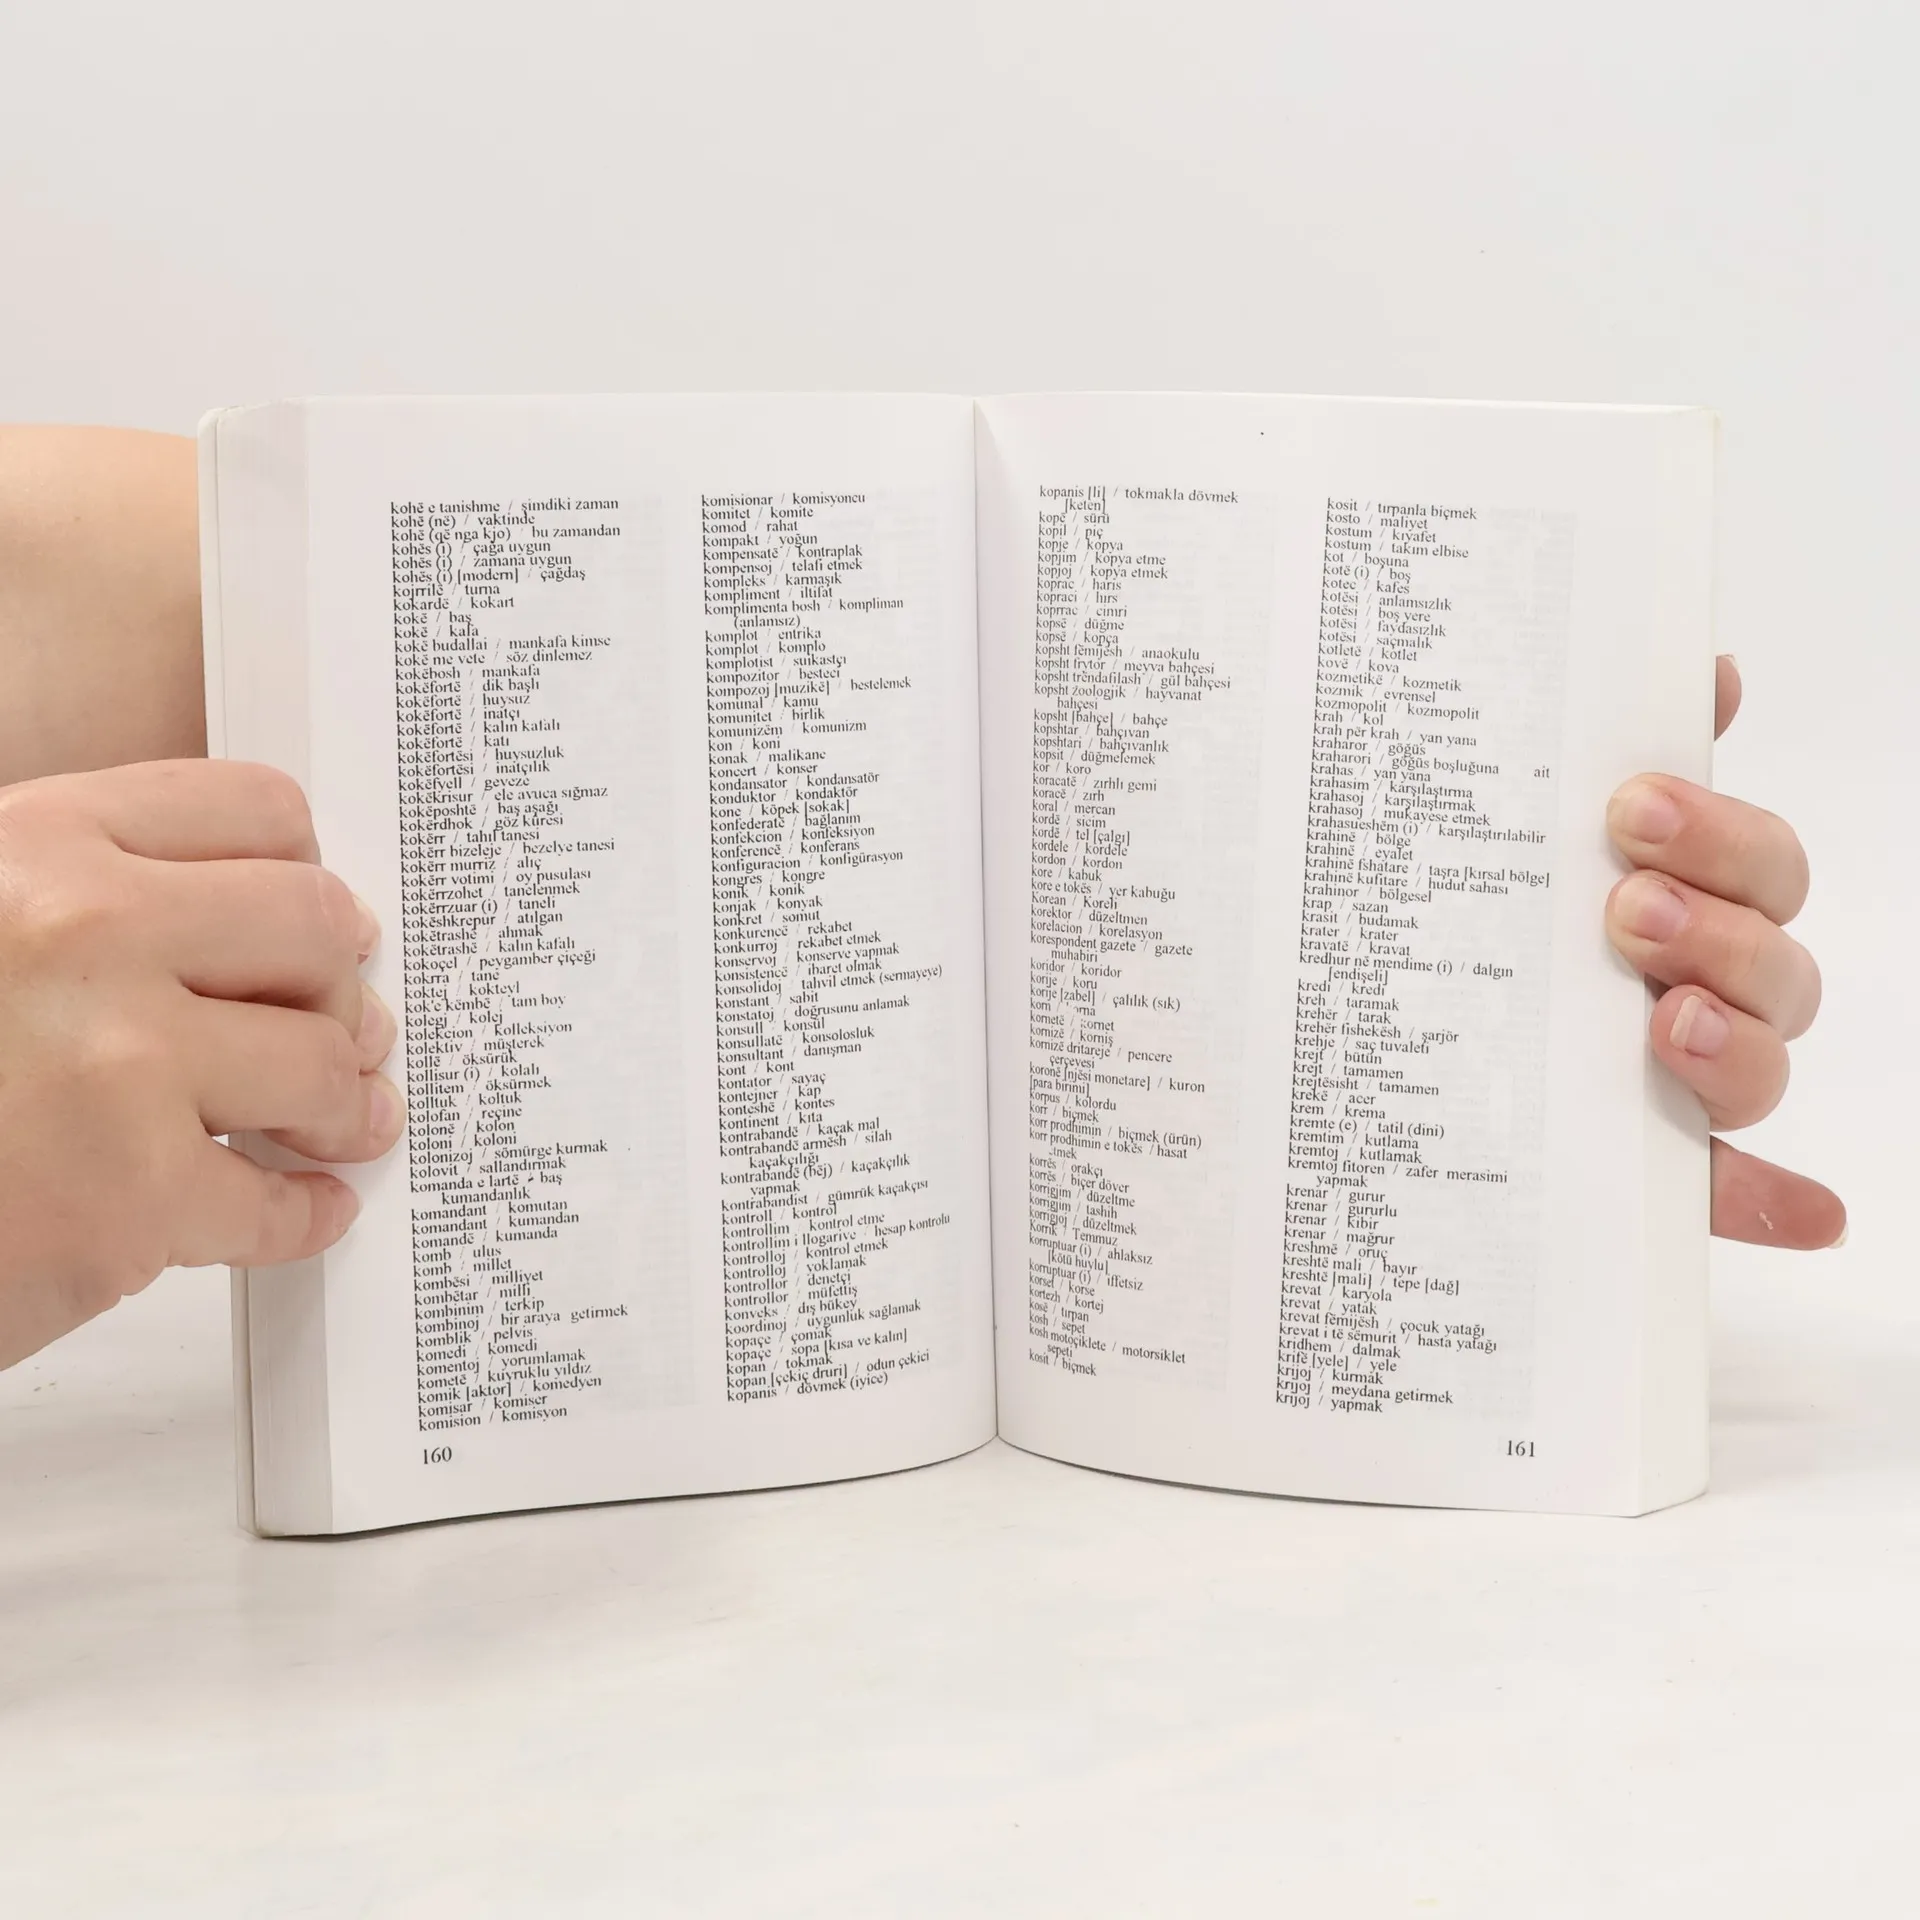 kohë e tanishme / şimdiki zaman
kohë (në) / vaktinde
kohë (që nga kjo) / bu zamandan
kohës (i) / çağa uygun
kohës (i) / zamana uygun
kohës (i) [modern] / çağdaş
kojrrilë / turna
kokardë / kokart
kokë / baş
kokë / kafa
kokë budallai / mankafa kimse
kokë me vete / söz dinlemez
kokëbosh / mankafa
kokëfortë / dik başlı
kokëfortë / huysuz
kokëfortë / inatçı
kokëfortë / kalın kafalı
kokëfortë / katı
kokëfortësi / huysuzluk
kokëfortësi / inatçılık
kokëfyell / geveze
kokëkrisur / ele avuca sığmaz
kokëposhtë / baş aşağı
kokërdhok / göz küresi
kokërr / tahıl tanesi
kokërr bizeleje / bezelye tanesi
kokërr murriz / alıç
kokërr votimi / oy pusulası
kokërrzohet / tanelenmek
kokërrzuar (i) / taneli
kokëshkrepur / atılgan
kokëtrashë / ahmak
kokëtrashë / kalın kafalı
kokoçel / peygamber çiçeği
kokrra / tane
koktej / kokteyl
kok'e këmbë / tam boy
kolegj / kolej
koleksion / kolleksiyon
kolektiv / müşterek
kollë / öksürük
kollisur (i) / kolalı
kollitem / öksürmek
kolltuk / koltuk
kolofan / reçine
kolonë / kolon
koloni / koloni
kolonizoj / sömürge kurmak
kolovit / sallandırmak
komanda e lartë / baş
kumandanlık
komandant / komutan
komandant / kumandan
komandë / kumanda
komb / ulus
komb / millet
kombësi / milliyet
kombëtar / milli
kombinim / terkip
kombinoj / bir araya getirmek
komblik / pelvis
komedi / komedi
komentoj / yorumlamak
kometë / kuyruklu yıldız
komik [aktor] / komedyen
komisar / komiser
komision / komisyon
160
komisionar / komisyoncu
komitet / komite
komod / rahat
kompakt / yoğun
kompensatë / kontraplak
kompensoj / telafi etmek
kompleks / karmaşık
kompliment / iltifat
komplimenta bosh / kompliman
(anlamsız)
komplot / entrika
komplot / komplo
komplotist / suikastçı
kompozitor / besteci
kompozoj [muzikë] / bestelemek
komunal / kamu
komunitet / birlik
komunizëm / komunizm
kon / koni
konak / malikane
koncert / konser
kondansator / kondansatör
konduktor / kondaktör
kone / köpek [sokak]
konfederatë / bağlanım
konfekcion / konfeksiyon
konferencë / konferans
konfiguracion / konfigürasyon
kongres / kongre
konik / konik
konjak / konyak
konkret / somut
konkurencë / rekabet
konkurroj / rekabet etmek
konservoj / konserve yapmak
konsistencë / ibaret olmak
konsolidoj / tahvil etmek (sermayeye)
konstant / sabit
konstatoj / doğrusunu anlamak
konsull / konsül
konsullatë / konsolosluk
konsultant / danışman
kont / kont
kontator / sayaç
kontejner / kap
konteshë / kontes
kontinent / kıta
kontrabandë / kaçak mal
kontrabandë armësh / silah
kaçakçılığı
kontrabandë (bëj) / kaçakçılık
yapmak
kontrabandist / gümrük kaçakçısı
kontroll / kontrol
kontrollim / kontrol etme
kontrollim i llogarive / hesap kontrolu
kontrolloj / kontrol etmek
kontrolloj / yoklamak
kontrollor / denetçi
kontrollor / müfettiş
konveks / dış bükey
koordinoj / uygunluk sağlamak
kopaçe / çomak
kopaçe / sopa [kısa ve kalın]
kopan / tokmak
kopan [çekiç druri] / odun çekici
kopanis / dövmek (iyice)
kopanis [li] / tokmakla dövmek
[keten]
kope / sürü
kopil / piç
kopje / kopya
kopjim / kopya etme
kopjoj / kopya etmek
koprac / haris
kopraci / hırs
koprrac / cimri
kopsë / düğme
kopsë / kopça
kopsht fëmijësh / anaokulu
kopsht frytor / meyva bahçesi
kopsht trëndafilash / gül bahçesi
kopsht zoologjik / hayvanat
bahçesi
kopsht [bahçe] / bahçe
kopshtar / bahçıvan
kopshtari / bahçıvanlık
kopsit / düğmelemek
kor / koro
koracatë / zırhlı gemi
koracë / zırh
koral / mercan
kordë / sicim
kordë / tel [çalgı]
kordele / kordele
kordon / kordon
kore / kabuk
kore e tokës / yer kabuğu
Korean / Koreli
korektor / düzeltmen
korelacion / korelasyon
korespondent gazete / gazete
muhabiri
koridor / koridor
korije / koru
korije [zabel] / çalılık (sık)
korn /
kometë /
kornizë / korniş
kornizë dritareje / pencere
çerçevesi
koronë [njësi monetare] / kuron
[para birimi]
korpus / kolordu
korr / biçmek
korr prodhimin / biçmek (ürün)
korr prodhimin e tokës / hasat
korrës / orakçı
korrës / biçer döver
korrigjim / düzeltme
korrigjim / tashih
korrigjoj / düzeltmek
Korrik / Temmuz
korruptuar (i) / ahlaksız
[kötü huylu]
korruptuar (i) / iffetsiz
korse / korse
kortezh / kortej
kosë / tırpan
kosh / sepet
kosh motoçiklete / motorsiklet
sepeti
kosit / biçmek
kosit / tırpanla biçmek
kosto / maliyet
kostum / kıyafet
kostum / takım elbise
kot / boşuna
kotë (i) / boş
kotec / kafes
kotësi / anlamsızlık
kotësi / boş yere
kotësi / faydasızlık
kotësi / saçmalık
kotletë / kotlet
kovë / kova
kozmetikë / kozmetik
kozmik / evrensel
kozmopolit / kozmopolit
krah / kol
krah për krah / yan yana
kraharor / göğüs
kraharori / göğüs boşluğuna ait
krahas / yan yana
krahasim / karşılaştırma
krahasoj / karşılaştırmak
krahasoj / mukayese etmek
krahasueshëm (i) / karşılaştırılabilir
krahinë / bölge
krahinë / eyalet
krahinë fshatare / taşra [kırsal bölge]
krahinë kufitare / hudut sahası
krahinor / bölgesel
krap / sazan
krasit / budamak
krater / krater
kravatë / kravat
kredhur në mendime (i) / dalgın
[endişeli]
kredi / kredi
kreh / taramak
krehër / tarak
krehër fishekësh / şarjör
krehje / saç tuvaleti
krejt / bütün
krejt / tamamen
krejtësisht / tamamen
krekë / acer
krem / krema
kremte (e) / tatil (dini)
kremtim / kutlama
kremtoj / kutlamak
kremtoj fitoren / zafer merasimi
yapmak
krenar / gurur
krenar / gururlu
krenar / kibir
krenar / mağrur
kreshmë / oruç
kreshtë mali / bayır
kreshtë [mali] / tepe [dağ]
krevat / karyola
krevat / yatak
krevat fëmijësh / çocuk yatağı
krevat i të sëmurit / hasta yatağı
kridhem / dalmak
krifë [yele] / yele
krijoj / kurmak
krijoj / meydana getirmek
krijoj / yapmak
161